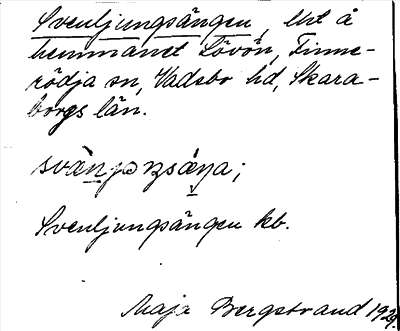 Svenljungsängen, lht å
hemmanet Lövön, Finne-
rödja sn, Vadsbo hd, Skara-
borgs län.
Svenljungsängen kb.
Maja Bergstrand 1929.